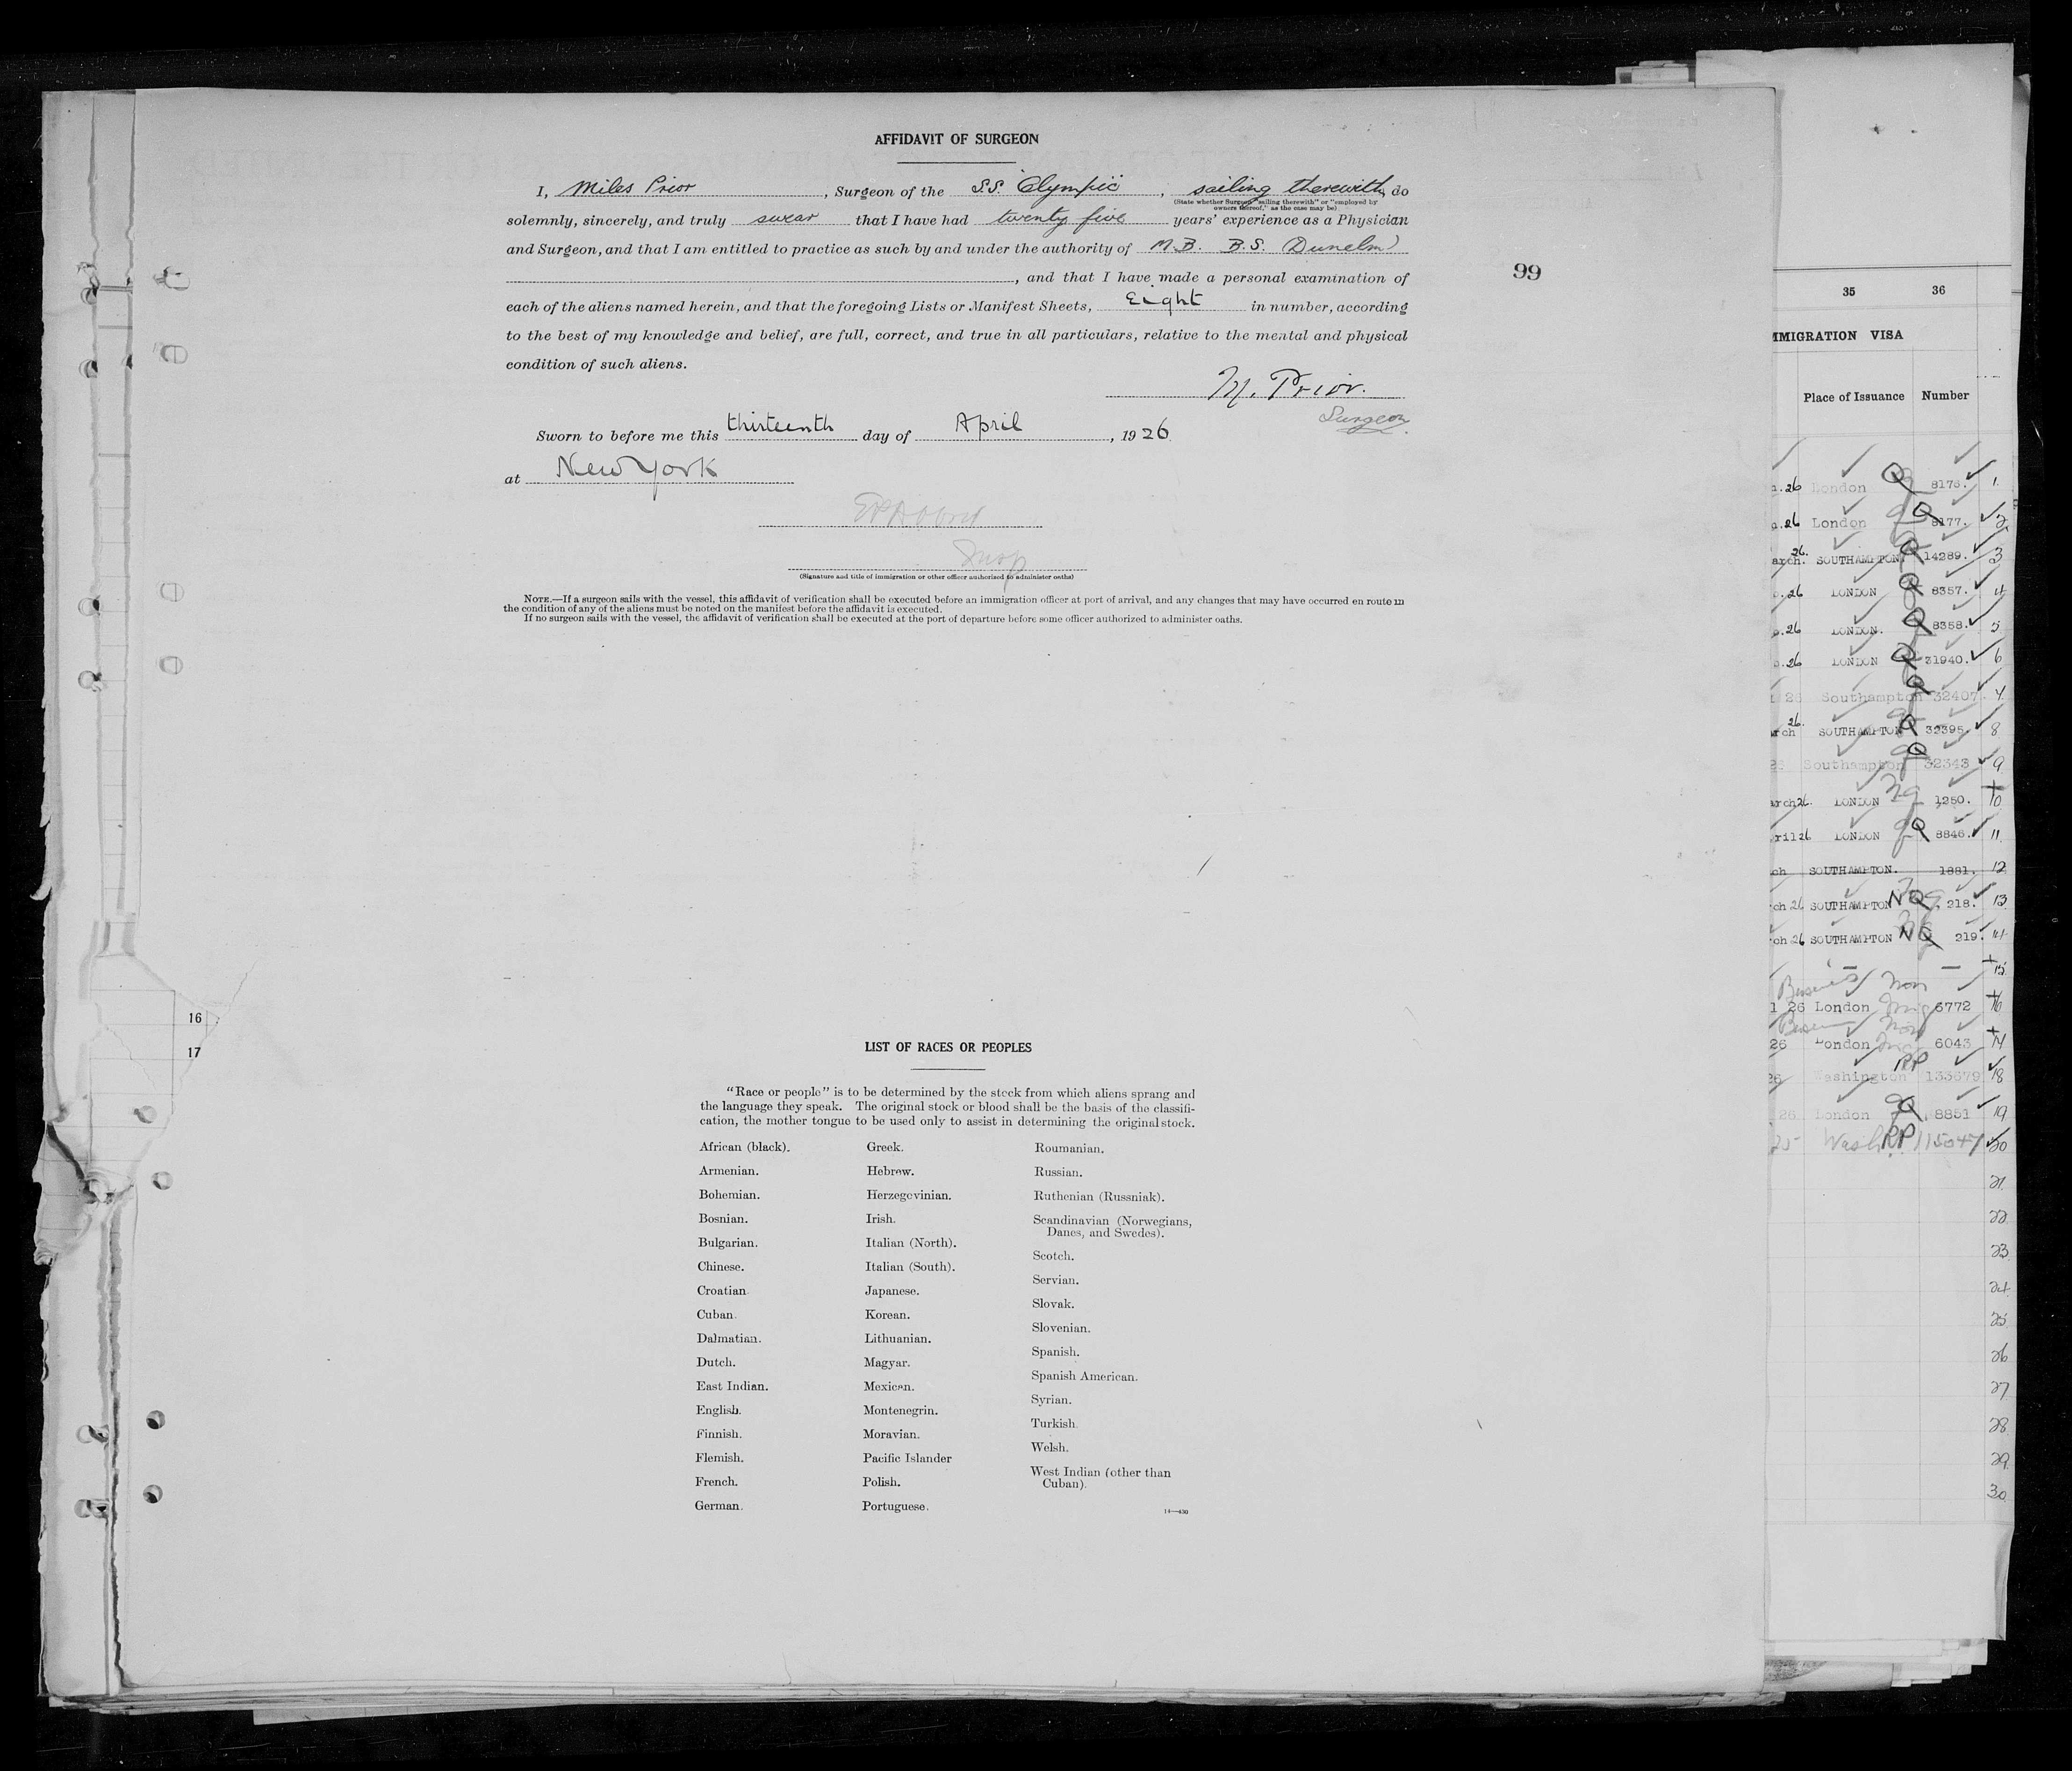 AFFIDAVIT OF SURGEON
I, Miles Prior, Surgeon of the S.S. Olympic, sailing therewith, do
(State whether Surgeon "sailing therewith" or "employed by
owners thereof," as the case may be)
solemnly, sincerely, and truly swear that I have had twenty five years' experience as a Physician
and Surgeon, and that I am entitled to practice as such by and under the authority of M.B. B.S. (Dunelm)
, and that I have made a personal examination of
99
each of the aliens named herein, and that the foregoing Lists or Manifest Sheets, Eight in number, according
to the best of my knowledge and belief, are full, correct, and true in all particulars, relative to the mental and physical
condition of such aliens.
M. Prior.
Surgeon
Sworn to before me this thirteenth day of April, 1926
at New York
Insp
(Signature and title of immigration or other officer authorized to administer oaths)
NOTE.—If a surgeon sails with the vessel, this affidavit of verification shall be executed before an immigration officer at port of arrival, and any changes that may have occurred en route in
the condition of any of the aliens must be noted on the manifest before the affidavit is executed.
If no surgeon sails with the vessel, the affidavit of verification shall be executed at the port of departure before some officer authorized to administer oaths.
16
17
LIST OF RACES OR PEOPLES
"Race or people" is to be determined by the stock from which aliens sprang and
the language they speak. The original stock or blood shall be the basis of the classifi-
cation, the mother tongue to be used only to assist in determining the original stock.
African (black).
Armenian.
Bohemian.
Bosnian.
Bulgarian.
Chinese.
Croatian.
Cuban.
Dalmatian.
Dutch.
East Indian.
English.
Finnish.
Flemish.
French.
German.
Greek.
Hebrew.
Herzegovinian.
Irish.
Italian (North).
Italian (South).
Japanese.
Korean.
Lithuanian.
Magyar.
Mexican.
Montenegrin.
Moravian.
Pacific Islander
Polish.
Portuguese.
Roumanian.
Russian.
Ruthenian (Russniak).
Scandinavian (Norwegians,
Danes, and Swedes).
Scotch.
Servian.
Slovak.
Slovenian.
Spanish.
Spanish American.
Syrian.
Turkish.
Welsh.
West Indian (other than
Cuban).
14—430
35 36
MMIGRATION VISA
Place of Issuance Number
.26 London Q 8176. 1.
.26 London Q 8177. 2
arch. 26. SOUTHAMPTON. Q 14289. 3
.26 LONDON Q 8357. 4
.26 LONDON. Q 8358. 5
.26 LONDON Q 31940. 6
26 Southampton Q 32407. 7
rch 26. SOUTHAMPTON Q 32395. 8
26 Southampton Q 32343 9
arch 26. LONDON 1250. 10
ril 26 LONDON Q 8846. 11
ch SOUTHAMPTON. 1881. 12
ch 26 SOUTHAMPTON NQ 218. 13
ch 26 SOUTHAMPTON NQ 219. 14
15
Business Non
1 26 London Imig 6772 16
Non
26 London 6043 17
RP
26 Washington 133679 18
26 London Q 8851 19
25 Wash. RP 115047 20
21.
22
23
24
25
26
27
28
29
30